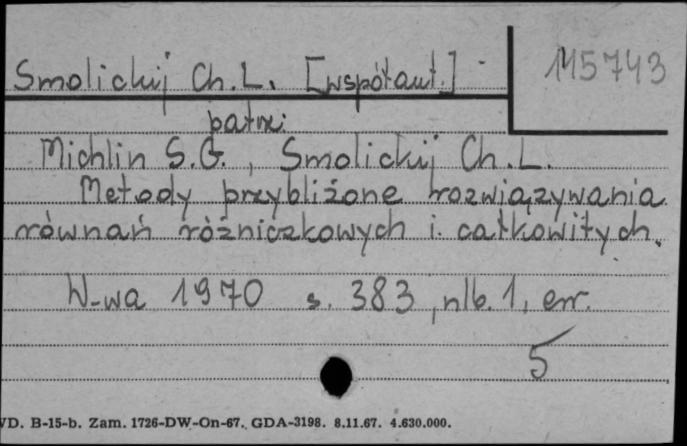 Smolickij Ch.L. [współaut.]
115743
patrz:
Michlin S.G., Smolickij Ch.L.
Metody przybliżone rozwiązywania
równań różniczkowych i całkowitych.
W-wa 1970 s. 383, nlb. 1, err.
5
VD. B-15-b. Zam. 1726-DW-On-67. GDA-3198. 8.11.67. 4.630.000.